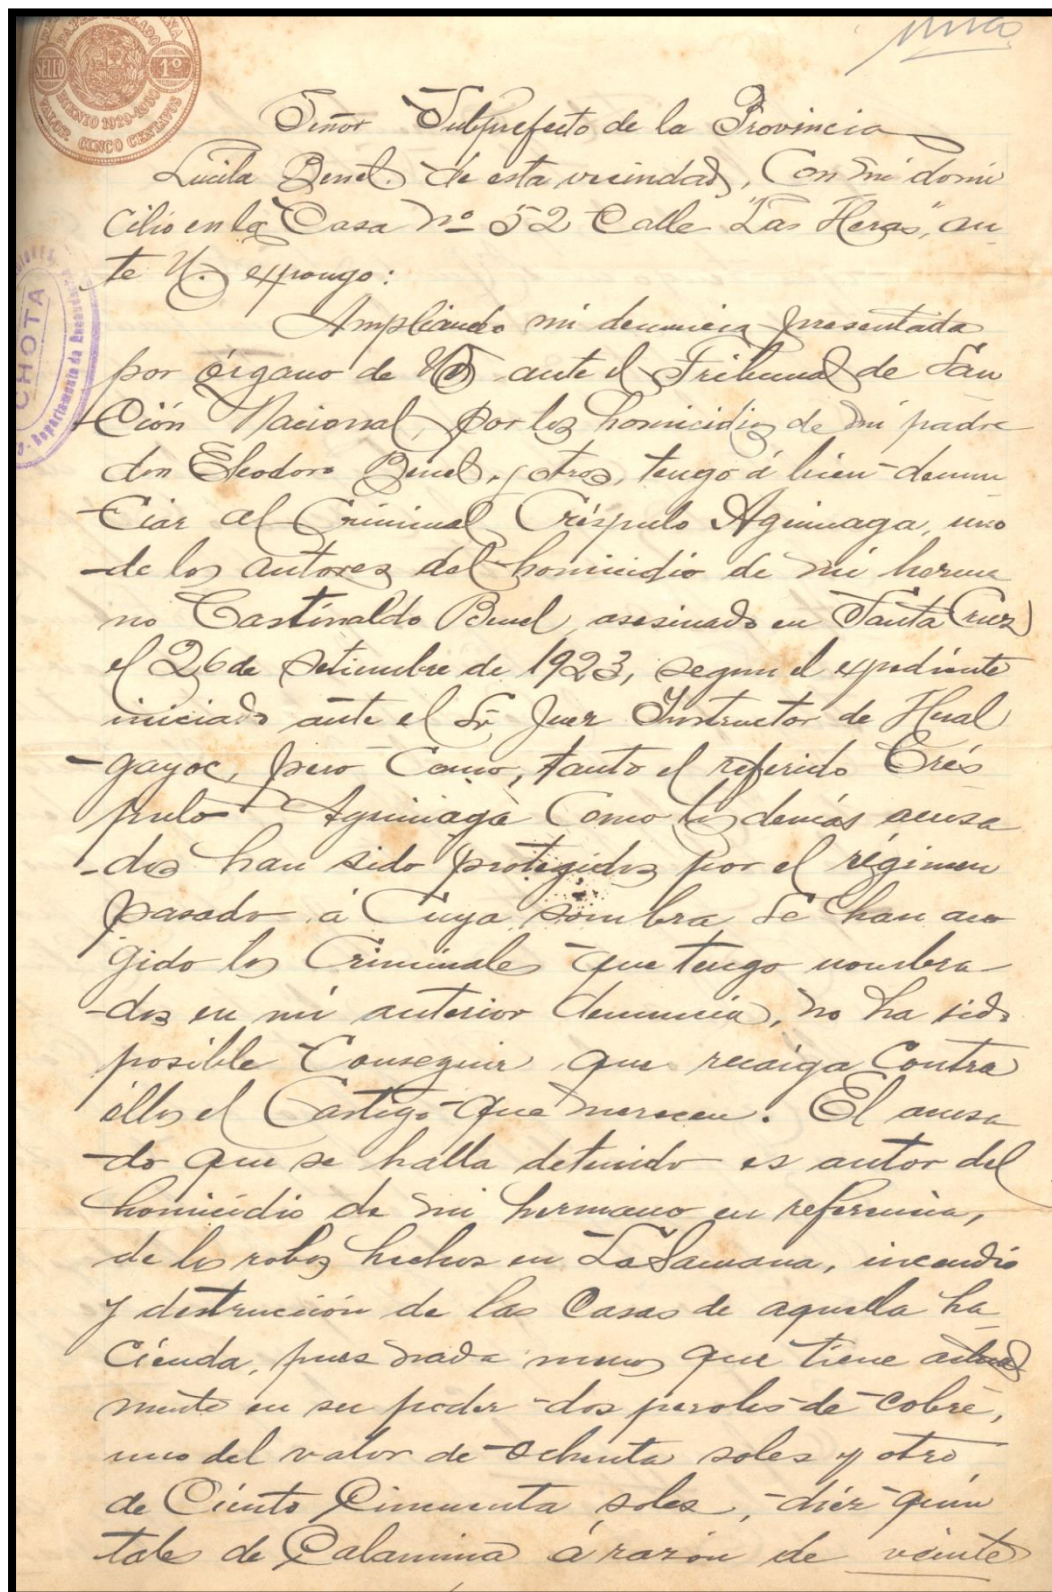 PAPEL SELLADO
SELLO 1º
VALOR CINCO CENTAVOS
CHOTA
Señor Subprefecto de la Provincia
Lucila Benel de esta vecindad, Con mi domi
cilio en la Casa Nº 52 Calle "Las Heras", an-
te U. expongo:
Ampliando mi denuncia presentada
por órgano de Ud. ante el Tribunal de San
ción Nacional, por los homicidios de mi padre
don Eleodoro Benel, y otros, tengo á bien denun
ciar al Criminal Críspulo Aguinaga, uno
de los autores del homicidio de mi herma
no Castinaldo Benel, asesinado en Santa Cruz
el 26 de Setiembre de 1923, segun el expediente
iniciado ante el Sr. Juez Instructor de Hual
gayoc, pero Como, tanto el referido Crés
pulo Aguinaga Como los demás acusa
dos han sido protegidos por el régimen
pasado á Cuya sombra se han aco
gido los Criminales que tengo nombra-
dos en mi anterior denuncia, no ha sido
posible Conseguir que recaiga Contra
ellos el Castigo que merecen. El acusa
do que se halla detenido es autor del
homicidio de mi hermano en referencia,
de los robos hechos en La Samana, incendio
y destrucción de las Casas de aquella ha-
cienda, pues nada menos que tiene actual
mente en su poder dos peroles de cobre,
uno del valor de ochenta soles y otro
de Ciento Cincuenta soles, diez quin
tales de Calamina á razón de veinte